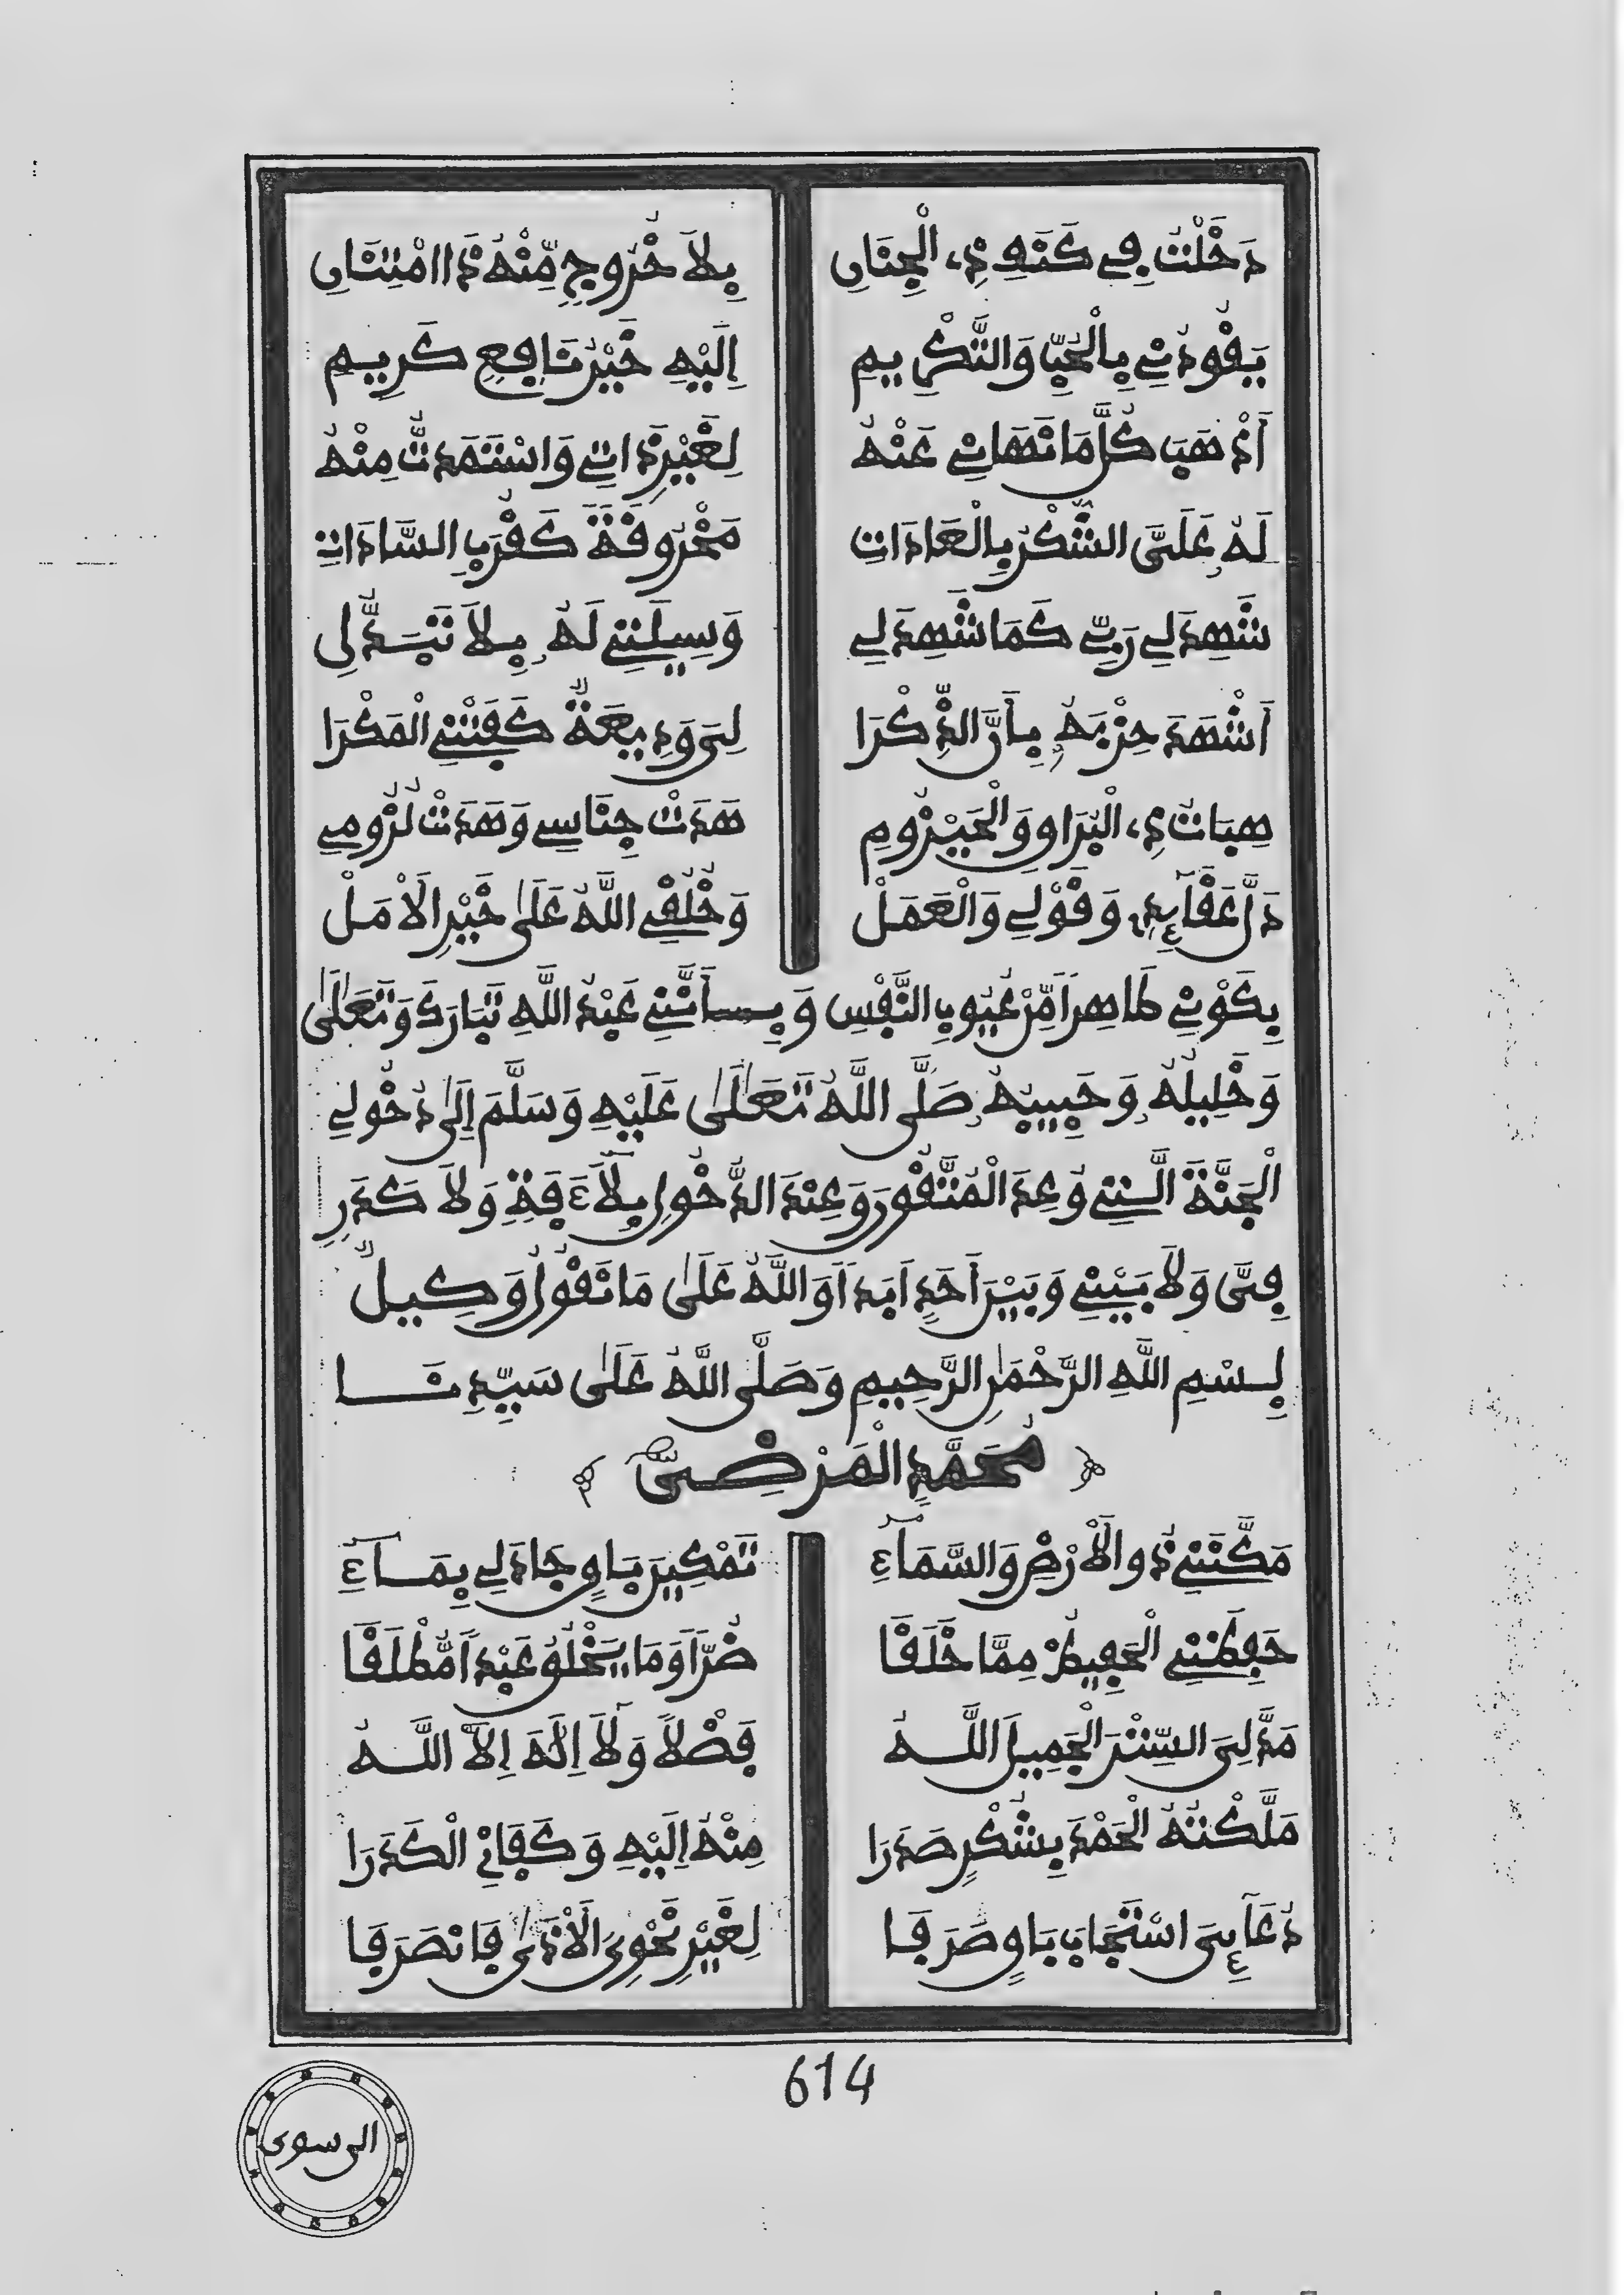 دَخَلْتُ فِي كَنَفِ ذِي الْجِنَانِ بِلَا خُرُوجٍ مِّنْهُ ذَا امْتِنَانِ
يَقُودُنِي بِالْحُبِّ وَالتَّكْرِيمِ إِلَيْهِ خَيْرُ نَافِعٍ كَرِيمِ
أَذْهَبَ كُلَّ مَا نَهَانِي عَنْهُ لِغَيْرِ ذَاتِي وَاسْتَمَدَّتْ مِنْهُ
لَهُ عَلَيَّ الشُّكْرُ بِالْعَادَاتِ مَخْرُوقَةً كَقُرْبِ السَّادَاتِ
شَهِدَ لِي رَبِّي كَمَا شَهِدَ لِي وَسِيلَتِي لَهُ بِلَا تَبَدُّلِ
أَشْهَدَ حِزْبَهُ بِأَنَّ الذِّكْرَا لِيَ وَدِيعَةٌ كَفَتْنِي الْمَكْرَا
هِبَاتُ ذِي الْبَرَاوِ وَالْحَيْزُومِ هَدَتْ جِنَانِي وَهَدَتْ لُزُومِي
دَلَّ عَقَائِدِي وَقَوْلِي وَالْعَمَلْ وَخُلُقِي اللَّهُ عَلَى خَيْرِ الْأَمَلْ
بِكَوْنِي طَاهِراً مِّنْ عُيُوبِ النَّفْسِ وَبِأَنَّنِي عَبْدُ اللَّهِ تَبَارَكَ وَتَعَالَى
وَخَلِيلُهُ وَحَبِيبُهُ صَلَّى اللَّهُ تَعَالَى عَلَيْهِ وَسَلَّمَ إِلَى دُخُولِي
الْجَنَّةَ الَّتِي وُعِدَ الْمُتَّقُونَ وَعِنْدَ الدُّخُولِ بِلَا ءَافَةٍ وَلَا كَدَرٍ
فِيَّ وَلَا بَيْنِي وَبَيْنَ أَحَدٍ أَبَداً وَاللَّهُ عَلَى مَا نَقُولُ وَكِيلٌ
بِسْمِ اللَّهِ الرَّحْمَنِ الرَّحِيمِ وَصَلَّى اللَّهُ عَلَى سَيِّدِنَا
مُحَمَّدٍ الْمَرْضِيِّ
مَكَّنَنِي ذُو الْأَرْضِ وَالسَّمَاءِ تَمْكِينَ بَاقٍ جَادَ لِي بِمَاءِ
حَفِظَنِي الْحَفِيظُ مِمَّا خَلَقَا ضُرّاً وَمَا يَخْلُقُ عَبْداً مُّطْلَقَا
مَدَّ لِيَ السِّتْرَ الْجَمِيلَ اللَّهُ فَضْلاً وَلَا إِلَهَ إِلَّا اللَّهُ
مَلَّكْتُهُ الْحَمْدَ بِشُكْرٍ صَدَرَا مِنْهُ إِلَيْهِ وَكَفَانِي الْكَدَرَا
دُعَائِيَ اسْتَجَابَ بَاقٍ صَرَفَا لِغَيْرِ نَحْوِيَ الْأَذَى فَانْصَرَفَا
614